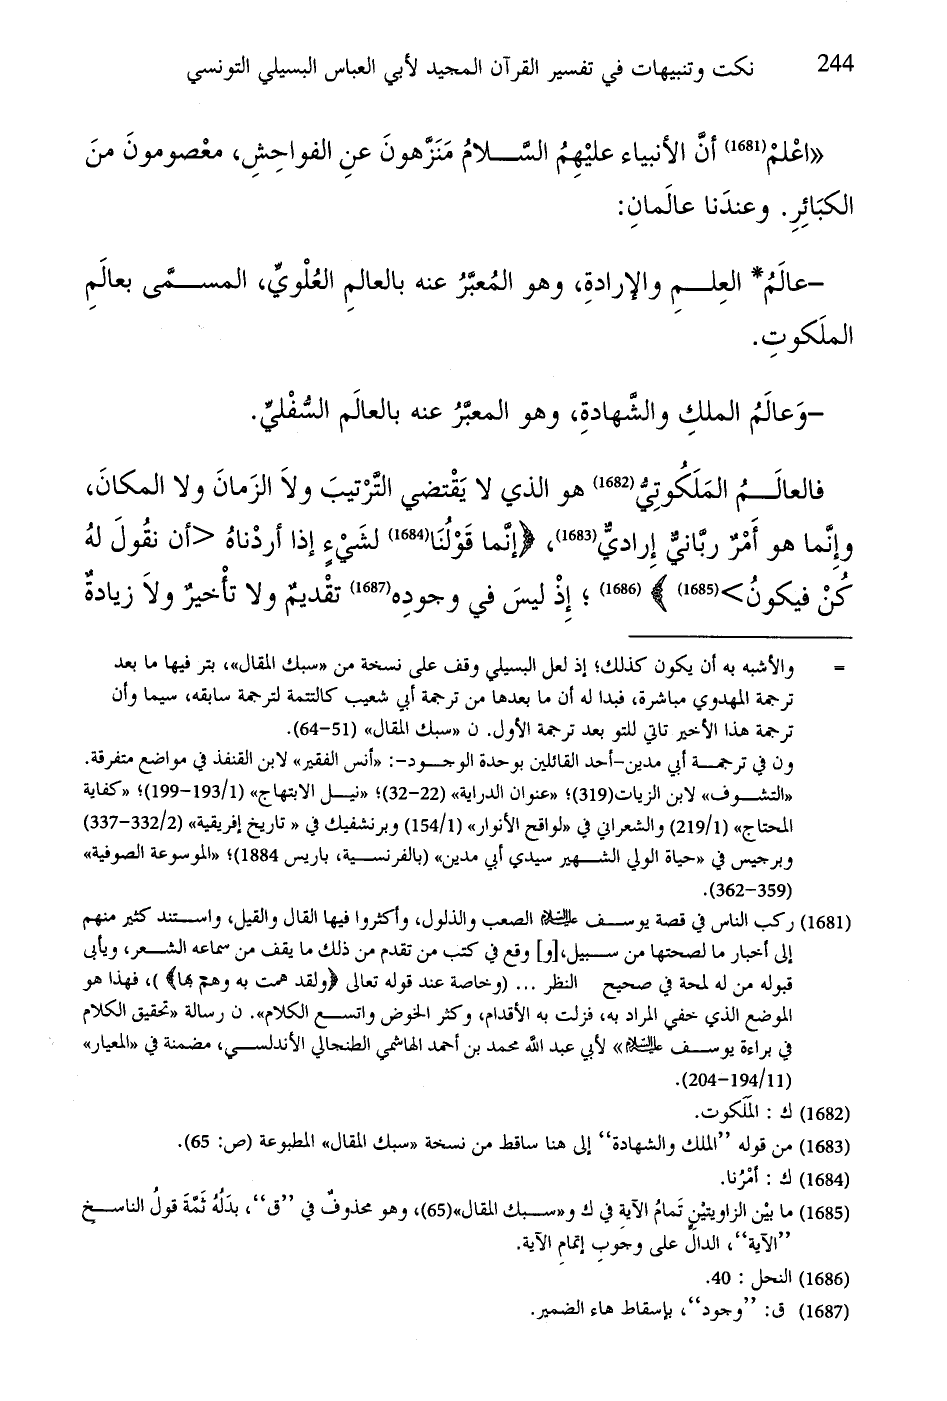 244 نكت وتنبيهات في تفسير القرآن المجيد لأبي العباس البسيلي التونسي
«اعْلمْ(1681) أنَّ الأنبياء عليْهِمُ السَّلامُ مَنَزَّهونَ عنِ الفواحِشِ، معْصومونَ منَ
الكبَائِرِ. وعندَنا عالَمانِ:
–عالَمُ* العِلمِ والإرادةِ، وهو المُعبَّرُ عنه بالعالمِ العُلْويِّ، المسمَّى بعالَمِ
الملَكوتِ.
–وَعالَمُ الملكِ والشَّهادةِ، وهو المعبَّرُ عنه بالعالَم السُّفْليِّ.
فالعالَمُ المَلَكُوتِيُّ(1682) هو الذي لا يَقْتضي التَّرْتيبَ ولاَ الزمَانَ ولا المكانَ،
وإنَّما هو أمْرٌ ربَّانيٌّ إراديٌّ(1683)، ﴿إنَّما قوْلُنَا(1684) لشَيْءٍ إذا أردْناهُ <أن نقُولَ لهُ
كُنْ فيكونُ>(1685) ﴾ (1686) ؛ إذْ ليسَ في وجودِه(1687) تقْديمٌ ولا تأْخيرٌ ولاَ زيادةٌ
= والأشبه به أن يكون كذلك؛ إذ لعل البسيلي وقف على نسخة من «سبك المقال»، بتر فيها ما بعد
ترجمة المهدوي مباشرة، فبدا له أن ما بعدها من ترجمة أبي شعيب كالتتمة لترجمة سابقه، سيما وأن
ترجمة هذا الأخير تاتي للتو بعد ترجمة الأول. ن «سبك المقال» (51–64).
ون في ترجمة أبي مدين–أحد القائلين بوحدة الوجود–: «أنس الفقير» لابن القنفذ في مواضع متفرقة.
«التشوف» لابن الزيات(319)؛ «عنوان الدراية» (22–32)؛ «نيل الابتهاج» (193/1–199)؛ «كفاية
المحتاج» (219/1) والشعراني في «لواقح الأنوار» (154/1) وبرنشفيك في « تاريخ إفريقية» (332/2–337)
وبرجيس في «حياة الولي الشهير سيدي أبي مدين» (بالفرنسية، باريس 1884)؛ «الموسوعة الصوفية»
(359–362).
(1681) ركب الناس في قصة يوسف عليه السلام الصعب والذلول، وأكثروا فيها القال والقيل، واستند كثير منهم
إلى أخبار ما لصحتها من سبيل،[و] وقع في كتب من تقدم من ذلك ما يقف من سماعه الشعر، ويأبى
قبوله من له لمحة في صحيح النظر ... (وخاصة عند قوله تعالى ﴿ولقد همت به وهم بها﴾ )، فهذا هو
الموضع الذي خفي المراد به، فزلت به الأقدام، وكثر الخوض واتسع الكلام». ن رسالة «تحقيق الكلام
في براءة يوسف عليه السلام» لأبي عبد الله محمد بن أحمد الهاشمي الطنجالي الأندلسي، مضمنة في «المعيار»
(194/11–204).
(1682) ك : المَلَكوت.
(1683) من قوله ''الملك والشهادة'' إلى هنا ساقط من نسخة «سبك المقال» المطبوعة (ص: 65).
(1684) ك : أمْرُنا.
(1685) ما بيْن الزاويتيْنِ تَمامُ الآية في ك و«سبك المقال»(65)، وهو محذوفٌ في ''ق''، بدَلُهُ ثَمَّةَ قولُ الناسخ
''الآية''، الدالّ على وجوبِ إتمامِ الآية.
(1686) النحل : 40.
(1687) ق: ''وجود''، بإسقاط هاء الضمير.